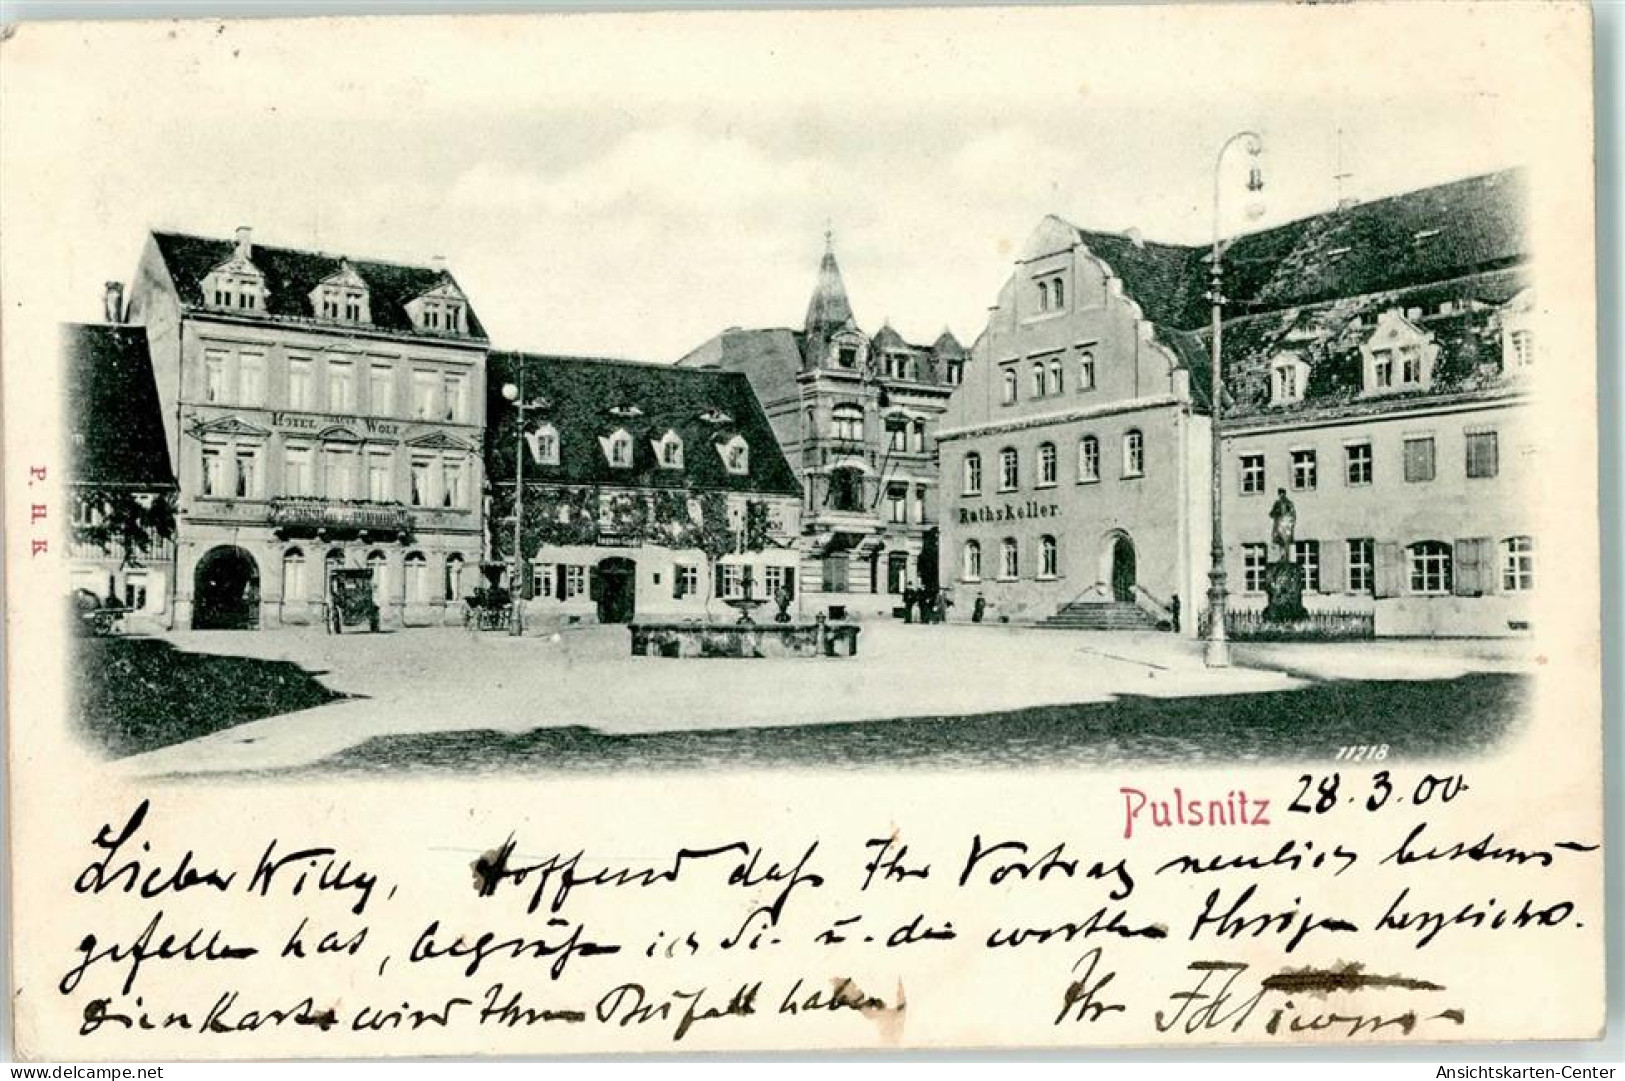 Ansichtskarten-Center
HOTEL GRAUER WOLF
Rathskeller.
P. H. K
11218
Pulsnitz 28.3.00
Lieber Willy, Hoffend daß Ihr Vortrag neulich bestens
gefallen hat, begrüße ich Si. u. die werthen Ihrigen herzlichst.
Karte wird Ihren Beifall haben. Ihr
Ansichtskarten-Center